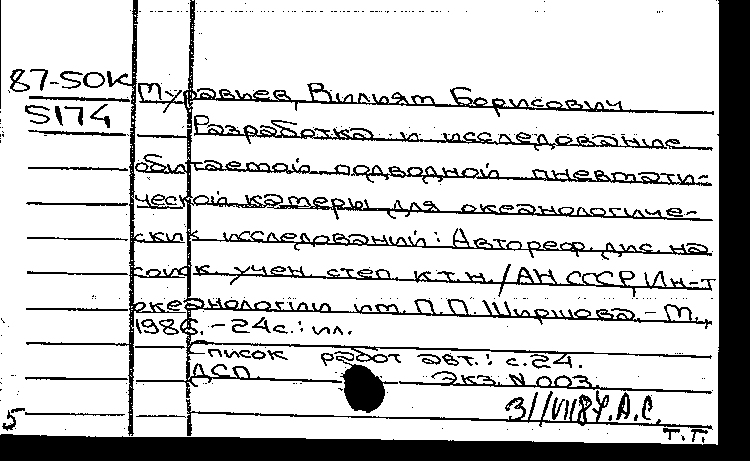 87-50К Муравьев, Вилиям Борисович
5174
Разработка и исследование
обитаемой подводной пневмати-
ческой камеры для океанологиче-
ских исследований: Автореф. дис. на
соиск. учен. степ. к.т.н. / АН СССР, Ин-т
океанологии им. П.П. Ширшова. - М.,
1986. - 24с.: ил.
Список работ авт.: с.24.
ДСП. Экз. N 003.
А.С.
5
Т.П.